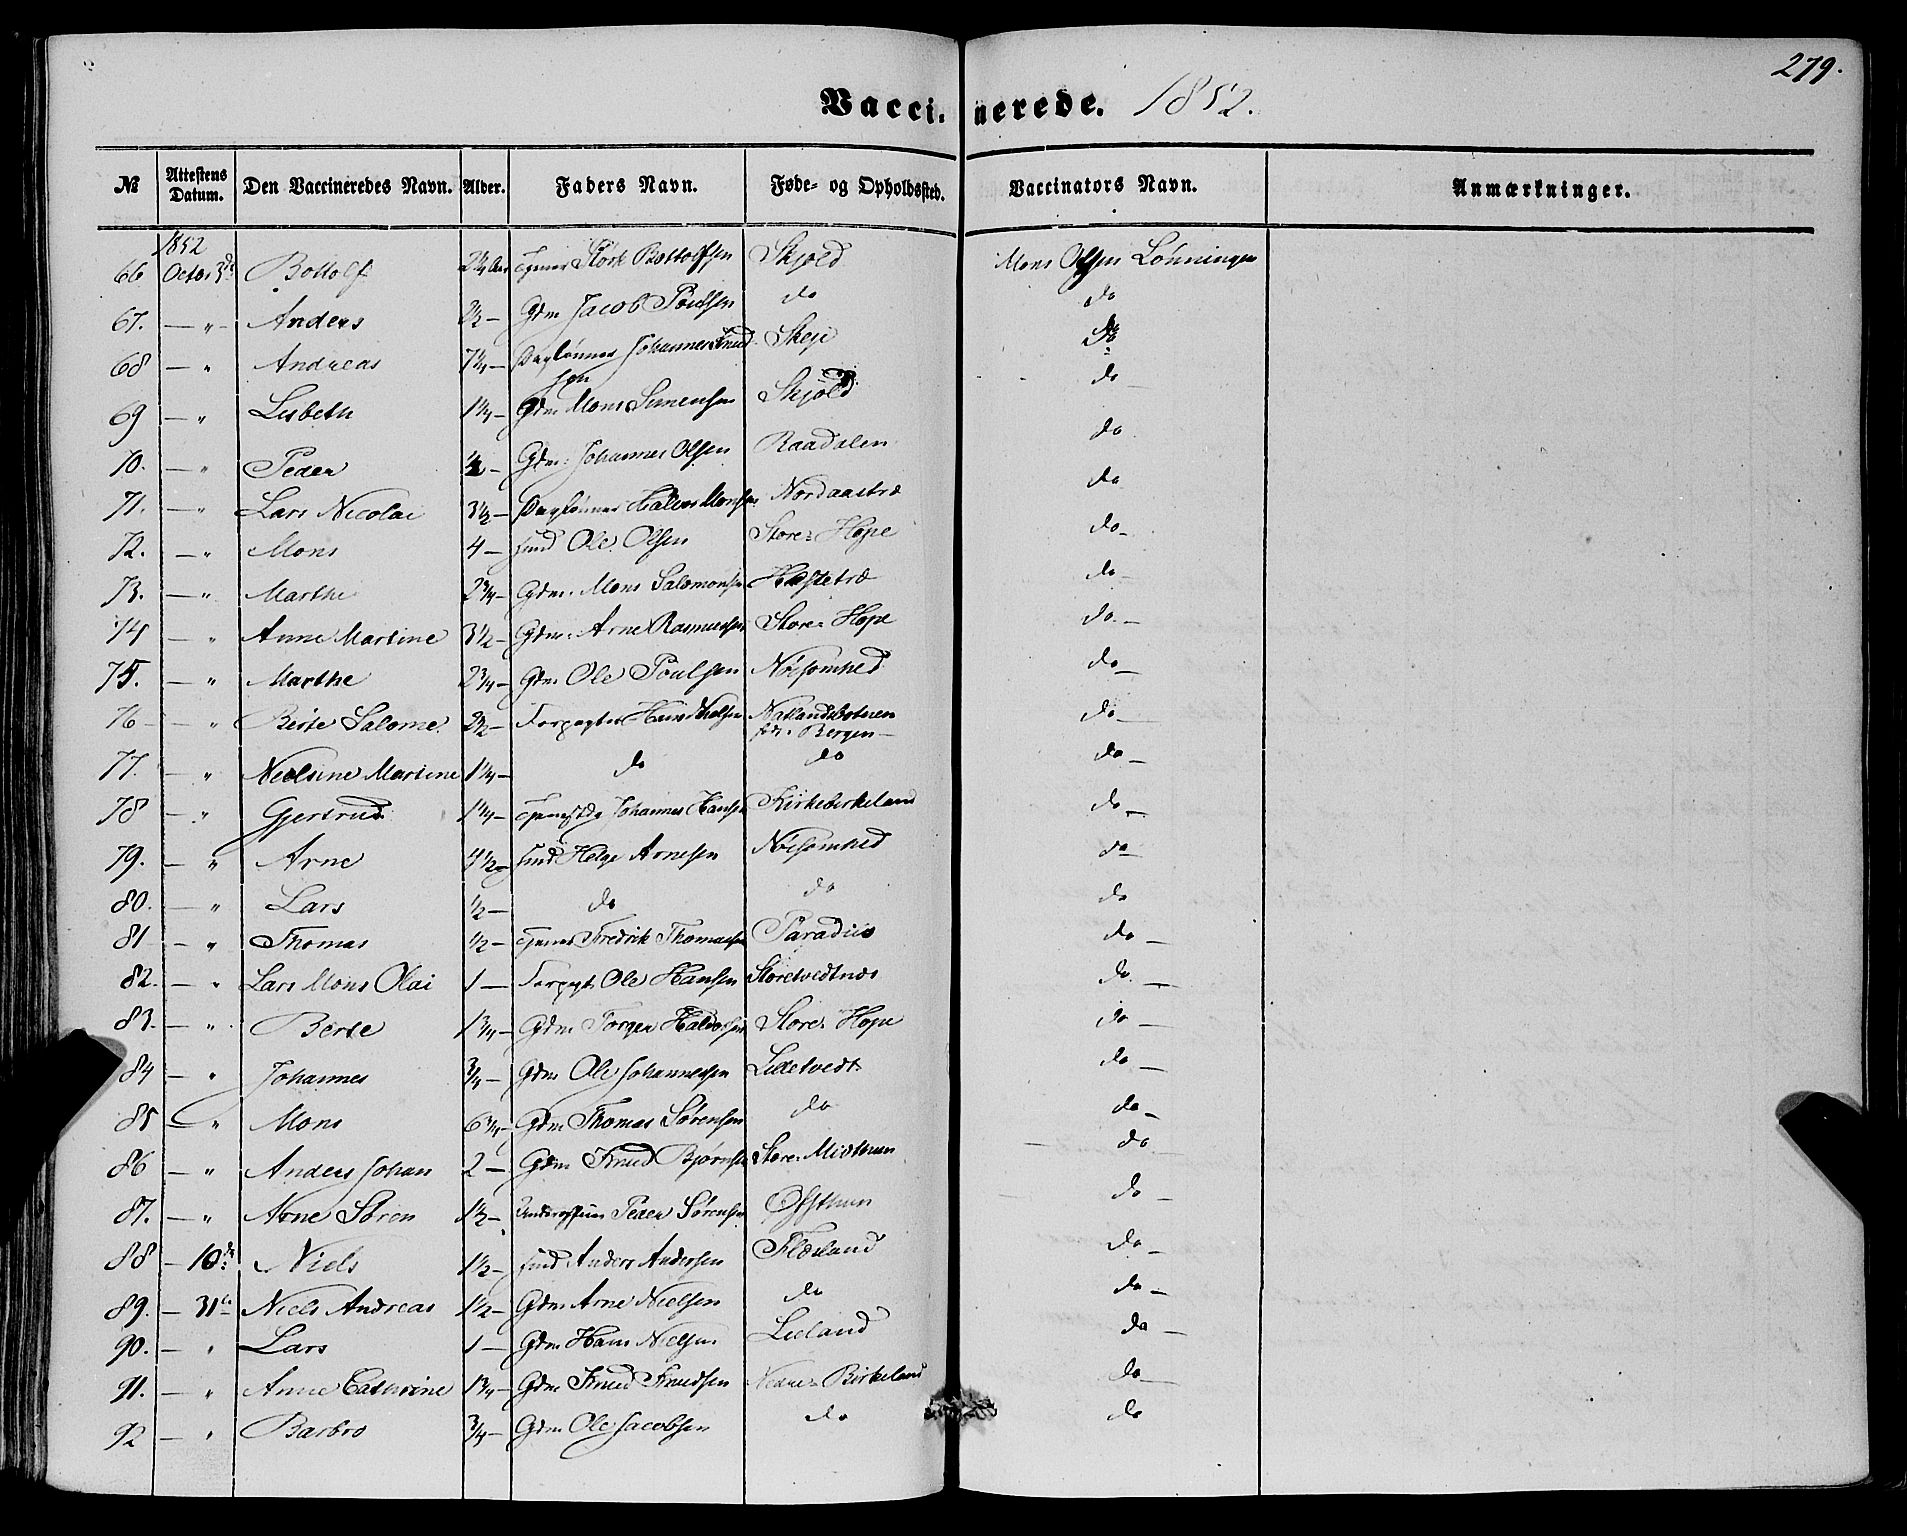 279.
Vaccinerede. 1852.
№ Attestens Datum. Den Vaccineredes Navn. Alder. Faders Navn. Føde- og Opholdssted. Vaccinators Navn. Anmærkninger.
1852
66 Octbr 3de Bottolf 2¼ Aar Størk Bottolfsen Skjold Mons Olsen Løhningen
67. — " Anders 2½ — Gdm Jacob Poulsen do do
68 — " Andreas 7¼ — Daglønner Johannes Knud- Skeje do
sen
69 — " Lisbeth 1¼ — Gdm Mons Simensen Skjold do
70. — " Peder ½ — Gdm: Johannes Olsen Raadalen do
71. — " Lars Nicolai 3½ — Daglønner Monsen Nordaastræ do
72. — " Mons 4 — Ole Olsen Store Hope do
73. — " Marthe 2¾ — Gdm. Mons Salomonsen Hæstetræ do
74 — " Anne Martine 3½ — Gdm. Arne Rasmussen Store Hope do
75. — " Marthe 2¾ — Gdm Ole Poulsen Nøisomhed do
76 — " Berte Salome 2½ — Forpagter Natlandsbotnen do
fød i Bergen —
77. — " Nielsine Martine 1¼ — do do do
78 — " Gjertrud 1¼ — Johannes Hansen Kirkebirkeland do
79. — " Arne 4½ — Helge Arnesen Nøisomhed do
80. — " Lars ½ — do do do
81 — " Thomas ½ — Fredrik Thomassen Paradiis do
82. — " Lars Mons Olai 1 — Forpagt. Ole Hansen Storetvedtnæs do
83. — " Berte 1¾ — Gdm Torger Haldorsen Store Hope do
84 — " Johannes ¾ — Gdm Ole Johannessen Lilletvedt do
85 — " Mons 6¾ — Gdm Thomas Sørensen do do
86 — " Anders Johan 2 — Gdm Knud Bjørnsen Store Midthun do
87. — " Arne Søren 1½ — Underofficier Peder Sørensen Øfsthun do
88 — 10de Niels 1½ — Anders Andersen Flesland do
89. — 31te Niels Andreas 1½ — Gdm Arne Nielsen do do
90. — " Lars 1 — Gdm Hans Nielsen Lieland do
91. — " Anne Cathrine 1¾ — Gdm Knud Knudsen Nedre Birkeland do
92 — " Barbro ¾ — Gdm Ole Jacobsen do do